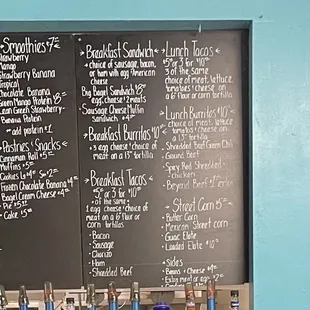 Smoothies $7
Strawberry
Mango
Strawberry Banana
Tropical
Chocolate Banana
Green Mango Protein $8
Lean Green Strawberry-
Banana Protein
add protein $1
Pastries & Snacks
Cinnamon Roll $5
Muffins $5
Cookies
Frozen Chocolate Banana $4
Bagel Cream Cheese $4
Pie $5
Cake $5
Breakfast Sandwich
choice of sausage, bacon,
or ham with egg & American
cheese
Big Bagel Sandwich $8
egg, cheese, 2 meats
Sausage Cheese Muffin
Sandwich $4
Breakfast Burritos $10
3 egg cheese & choice of
meat on a 13" tortilla
Breakfast Tacos
$5 or 3 for $10
of the same
1 egg cheese & choice of
meat on a 6" flour or
corn tortillas
- Bacon
- Sausage
- Chorizo
- Ham
- Shredded Beef
Lunch Tacos
$5 or 3 for $10
3 of the same
choice of meat, lettuce,
tomatoes & cheese on
a 6" flour or corn tortilla
Lunch Burritos $10
choice of meat, lettuce
tomatoes & cheese on
a 13" tortilla
- Shredded Beef Green Chili
- Ground Beef
- Spicy Red Shredded
chicken
- Beyond Beef
Street Corn $5
- Butter Corn
- Mexican Street corn
- Guac Elote
- Loaded Elote $10
Sides
Beans & Cheese $4